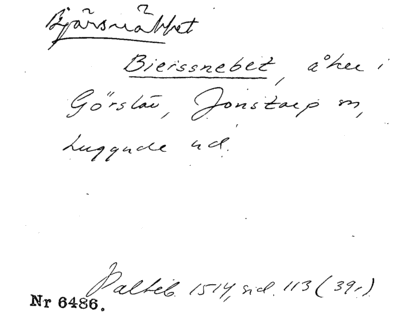 Bjärsnäbbet
Bieissnebet, åker i
Görslöv, Jonstorp sn,
Luggude hd.
Palteb. 1514, sid. 113 (39r)
Nr 6486.